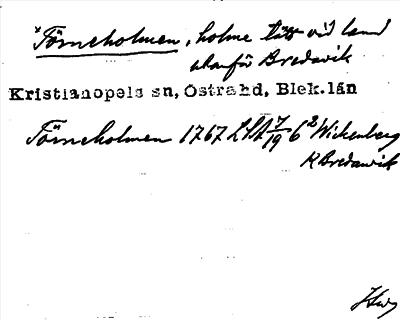 *Törneholmen, holme tätt vid land
utanför Bredavik
Kristianopels sn, Östra hd, Blek.län
Törneholmen 1767 LSA 7/19 6² Wickenberg
R Bredavik